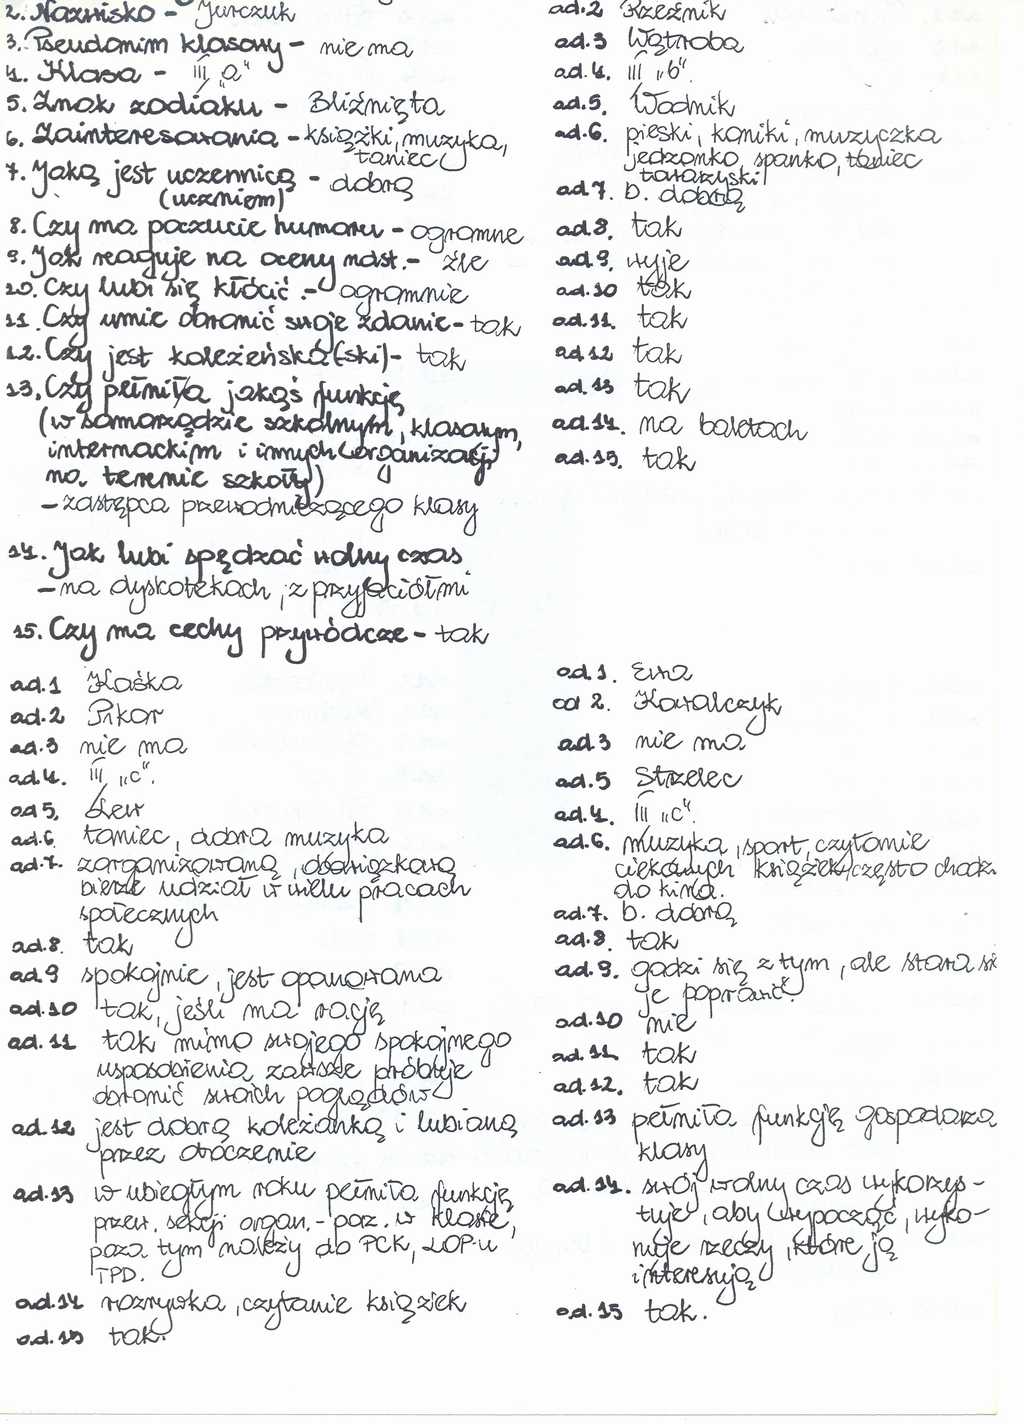 2. Nazwisko - Jurczuk
3. Pseudonim klasowy - nie ma
4. Klasa - III „a"
5. Znak zodiaku - Bliźnięta
6. Zainteresowania - książki, muzyka,
taniec
7. Jaką jest uczennicą - dobrą
(uczniem)
8. Czy ma poczucie humoru - ogromne
9. Jak reaguje na oceny ndst. - źle
10. Czy lubi się kłócić. - ogromnie
11. Czy umie obronić swoje zdanie - tak
12. Czy jest koleżeńska (ski) - tak
13. Czy pełnił/a jakąś funkcję
(w samorządzie szkolnym, klasowym,
internackim i innych organizacji
na terenie szkoły)
- zastępca przewodniczącego klasy
14. Jak lubi spędzać wolny czas
- na dyskotekach, z przyjaciółmi
15. Czy ma cechy przywódcze - tak
ad.2 Rzeźnik
ad.3 Wątroba
ad.4. III „b".
ad.5. Wodnik
ad.6. pieski, koniki, muzyczka
jedzonko, spanko, taniec
towarzyski
ad.7. b. dobrą
ad.8. tak
ad.9. wyje
ad.10 tak
ad.11. tak
ad.12 tak
ad.13 tak
ad.14. na baletach
ad.15. tak
ad.1 Kaśka
ad.2 Pikor
ad.3 nie ma
ad.4. III „c".
ad 5. Lew
ad.6. taniec, dobra muzyka
ad.7. zorganizowaną, obowiązkową
bierze udział w wielu pracach
społecznych
ad.8. tak
ad.9 spokojnie, jest opanowana
ad.10 tak, jeśli ma rację
ad.11 tak mimo swojego spokojnego
usposobienia zawsze próbuje
obronić swoich poglądów
ad.12 jest dobrą koleżanką i lubianą
przez otoczenie
ad.13 w ubiegłym roku pełniła funkcję
przew. sekcji organ.-poz. w klasie,
poza tym należy do PCK, LOP-u
TPD.
ad.14 rozrywka, czytanie książek
ad.15 tak.
ad.1. Ewa
ad 2. Kowalczyk
ad.3 nie ma
ad.5 Strzelec
ad.4. III „c".
ad.6. muzyka, sport, czytanie
ciekawych książek, często chodzi
do kina.
ad.7. b. dobrą
ad.8. tak
ad.9. godzi się z tym, ale stara się
je poprawić.
ad.10 nie
ad.11. tak
ad.12. tak
ad.13 pełniła funkcję gospodarza
klasy
ad.14. swój wolny czas wykorzys-
tuje, aby wypocząć, wyko-
nuje rzeczy, które ją
interesują
ad.15 tak.